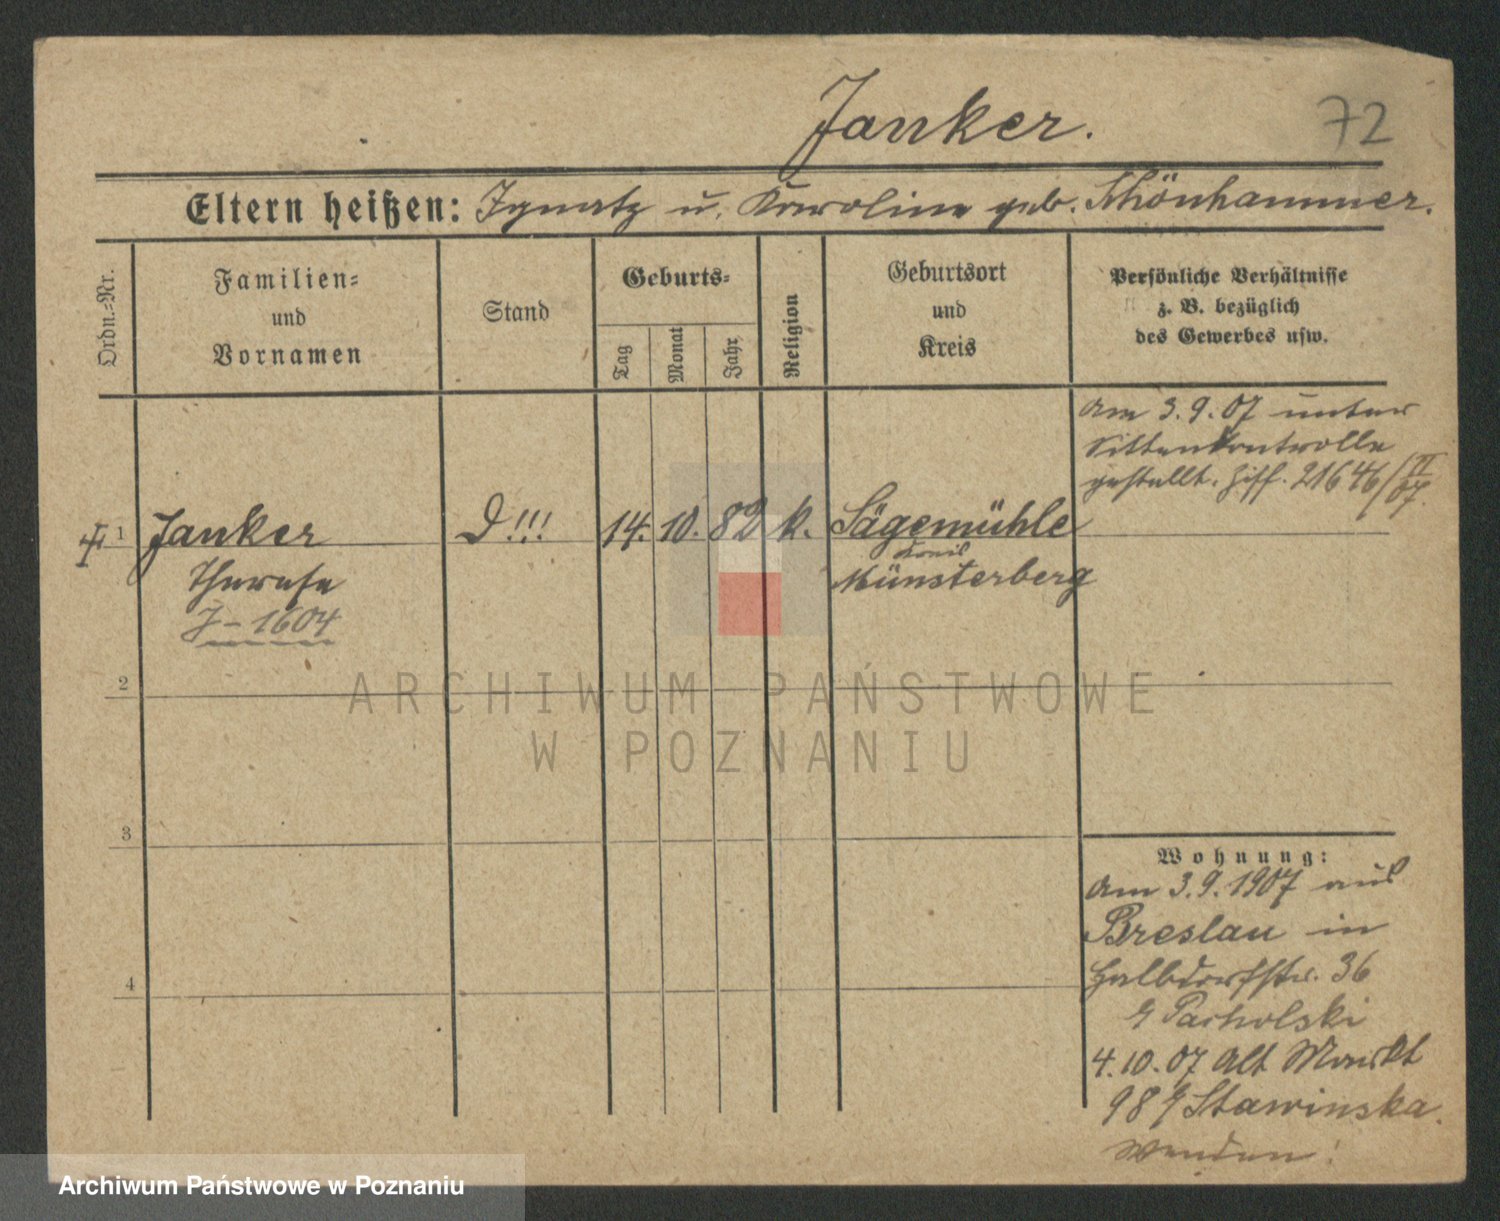 Janker.
72
Eltern heißen: Ignatz u. Karoline geb. Schönhammer.
Ordn.=Nr.
Familien=
und
Vornamen
Stand
Geburts=
Tag
Monat
Jahr
Religion
Geburtsort
und
Kreis
Persönliche Verhältnisse
z. B. bezüglich
des Gewerbes usw.
Am 3.9.07 unter
Sittenkontrolle
gestellt. Ziff. 21646/II
07.
1 Janker D!!! 14. 10. 82 k. Sägemühle
Kreis
Therese Münsterberg
J-1604
2
3
4
Wohnung:
Am 3.9.1907 aus
Breslau in
Halbdorfstr. 36
Pacholski
4.10.07 Alt Markt
98 Stawinska.
Wenden!
ARCHIWUM PAŃSTWOWE
W POZNANIU
Archiwum Państwowe w Poznaniu